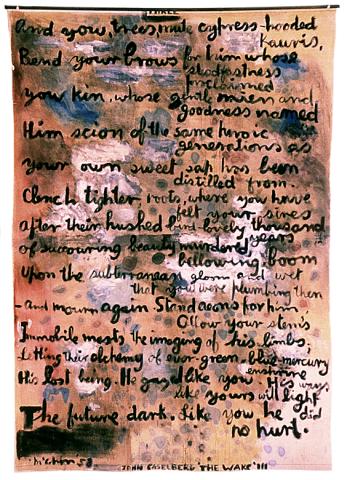 THREE
And you, trees, mute cypress-hooded
kauris,
Bend your brows for him whose
steadfastness
proclaimed
you kin, whose gentle mien and
goodness named
Him scion of the same heroic
generations as
your own sweet sap has been
distilled from.
Clench tighter, roots, where you have
felt your sires
after their hushed bird-lovely thousand
years
of succouring beauty murdered
bellowing boom
Upon the subterranean gloom and wet
that you were plumbing then
– and mourn again. Stand aeons for him
Allow your stems
Immobile masts the imaging of his limbs,
Letting their alchemy of ever-green-blue-mercury
enshrine
His lost being. He gazed like you
His ways
like yours will light
The future dark. Like you he did
no hurt.
McCahon '58
JOHN CASELBERG 'THE WAKE' III